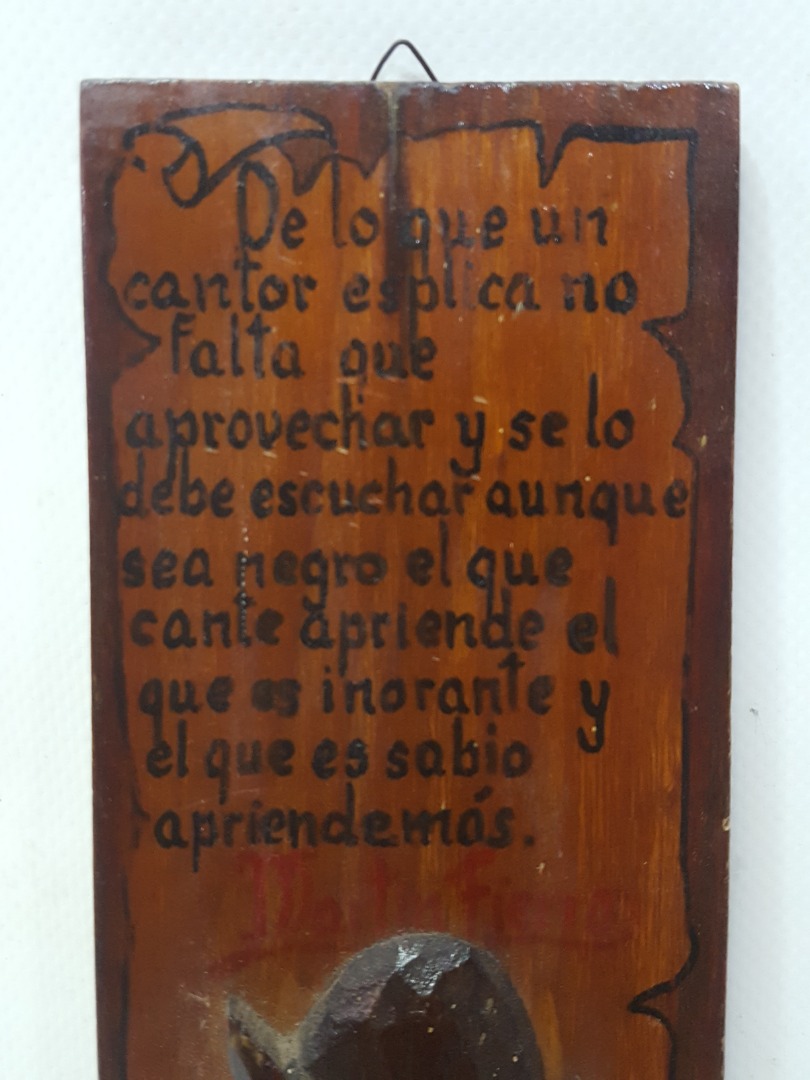 De lo que un
cantor esplica no
falta que
aprovechar y se lo
debe escuchar aunque
sea negro el que
cante apriende el
que es inorante y
el que es sabio
apriende más.
Martin Fierro